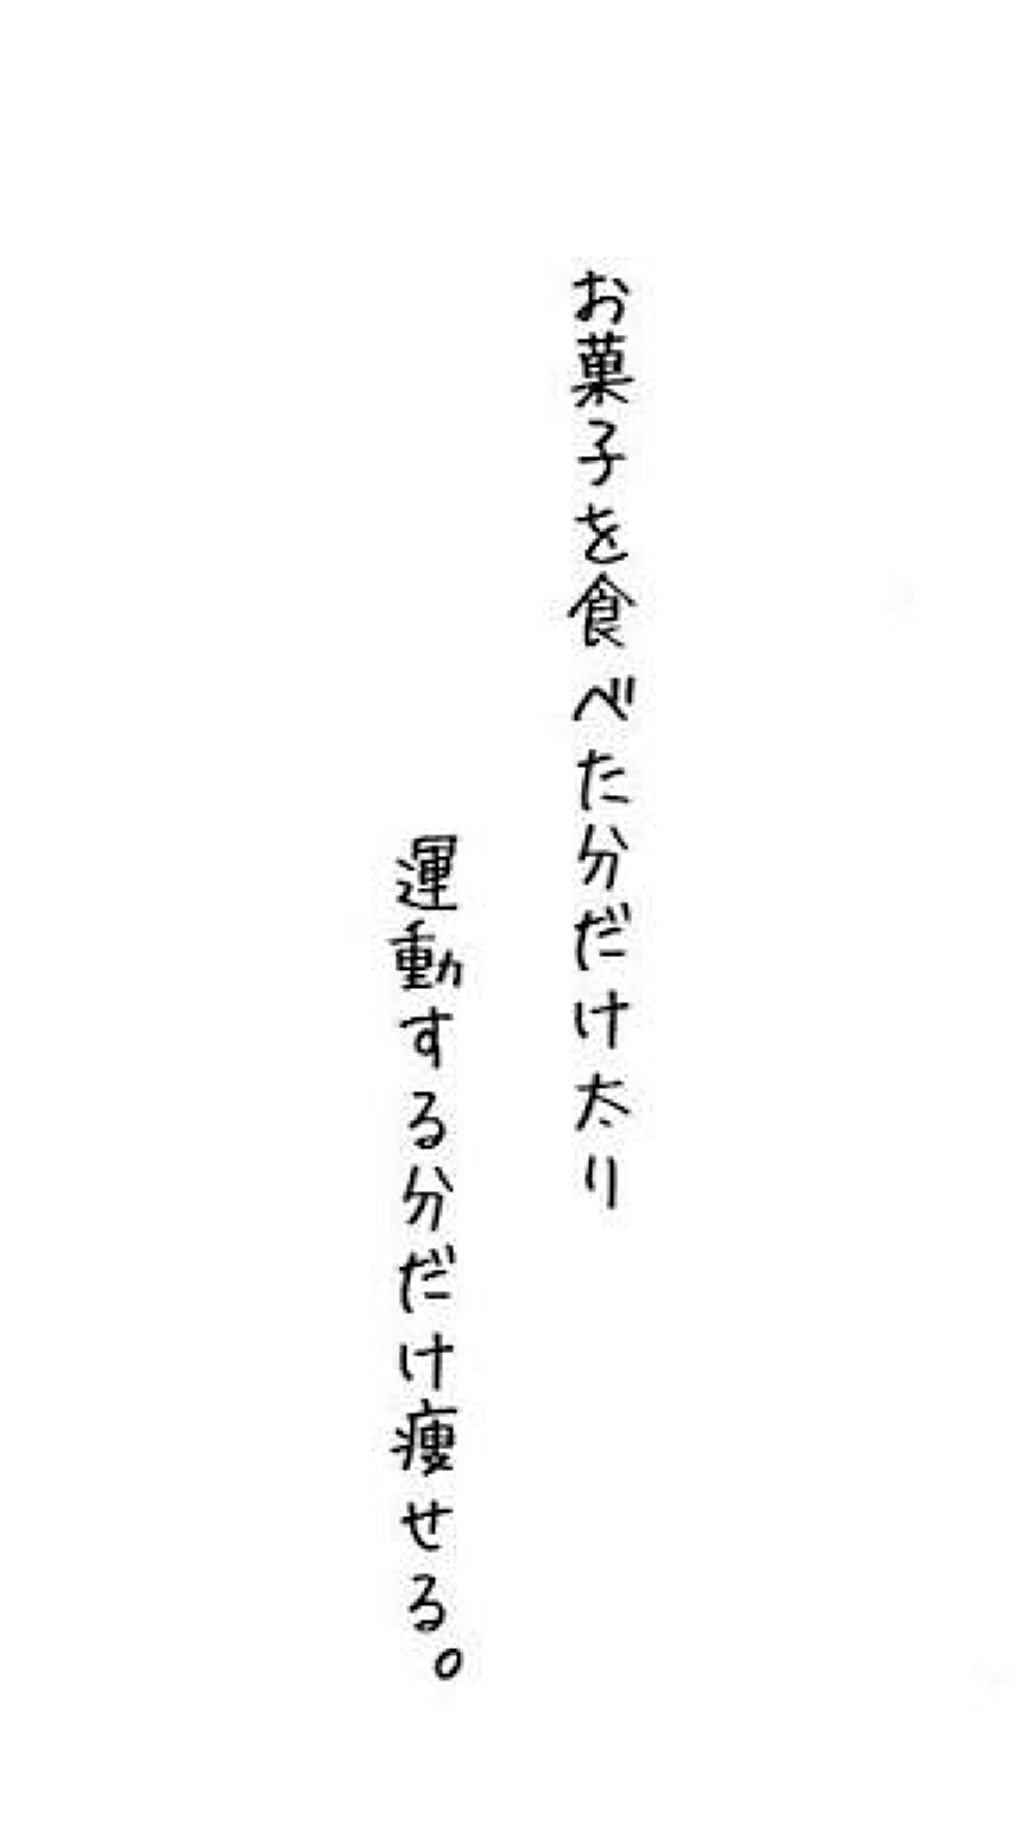 お菓子を食べた分だけ太り
運動する分だけ痩せる。